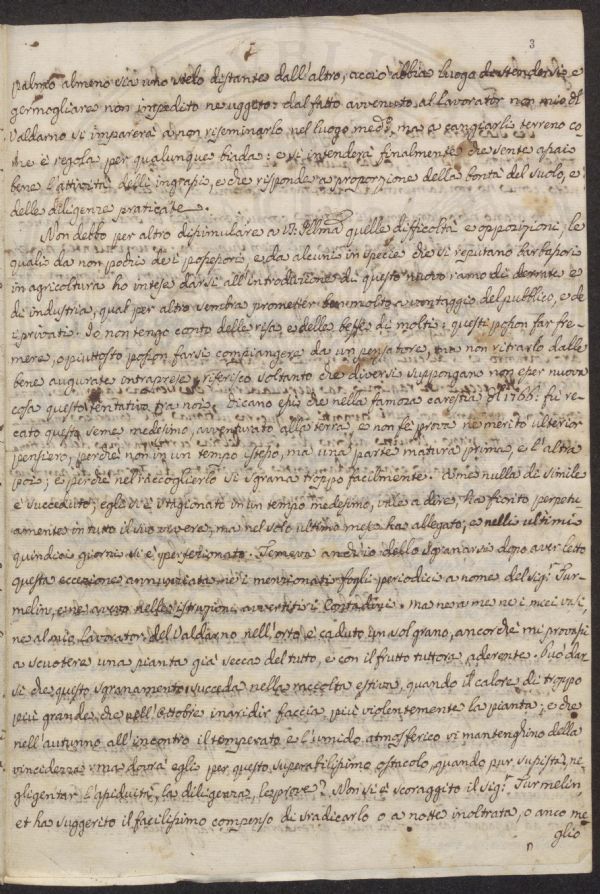 3
palmo almeno sia uno stelo distante dall'altro, acciò abbia luogo de stendersi, e
germogliare non impedito ne uggeto: dal fatto avvenuto al lavorator non mio di
Valdarno si imparerà a non riseminarlo nel luogo med.º, ma a cangiarli terreno co
me è regola per qualunque biada: e si intenderà finalmente che sente assai
bene l'attività delli ingrassi, e che risponde a proporzione della bontà del suolo, e
delle diligenze praticate.
Non debbo per altro dissimulare a V. Illma quelle difficoltà e opposizioni, le
quali da non pochi dei possessori e da alcuni in specie che si reputano
in agricoltura ho intese darsi all'introduzione di questo nuovo ramo di derrate e
di industria, qual per altro sembra prometter ben molto a vantaggio del pubblico, e de
i privati. Io non tengo conto delle risa e delle beffe di molti: questi posson far fre
mere, o piuttosto posson farsi compiangere da un pensatore, ma non ritrarlo dalle
bene augurate intraprese, riferisco soltanto che diversi suppongano non esser nuova
cosa questo tentativo tra noi. Dicano essi che nella famosa carestia del 1766: fù re
cato questo seme medesimo, avventurato alla terra, e non fè prova ne meritò ulterior
pensiero, perchè non in un tempo istesso, ma una parte matura prima, e l'altra
poi; e perchè nel raccoglierlo si sgrana troppo facilmente. A me nulla di simile
è succeduto; egli si è stagionato in un tempo medesimo, vale a dire, ha fiorito perpetu
amente in tutto il suo vivere, ma nel solo ultimo mese ha allegato; e nelli ultimi
quindici giorni si è perfezionato. Temeva anch'io dello sgranarsi dopo aver letto
questa eccezione annunziata ne i menzionati fogli periodici a nome del Sig.r Tur
melin, e ne avevo nelle istruzioni avvertiti i Contadini. ma nè a me ne i miei vasi,
ne al mio Lavorator del Valdarno nell'orto è caduto un sol grano, ancorchè mi provassi
a scuotere una pianta già secca del tutto, e con il frutto tuttora aderente. Può dar
si che questo sgranamento succeda nella raccolta estiva, quando il calore di troppo
più grande, che nell'Ottobre inaridir faccia più violentemente la pianta; e che
nell'autunno all'incontro il temperato e l'umido atmosferico vi mantenghino della
vincidezza: ma dovrà egli per questo superabilissimo ostacolo, quando pur sussista, ne
gligentar l'assiduità, la diligenza, le prove? Non si è scoraggito il Sig.r Turmelin
et ha suggerito il facilissimo compenso di sradicarlo o a notte inoltrata, o anco me
glio